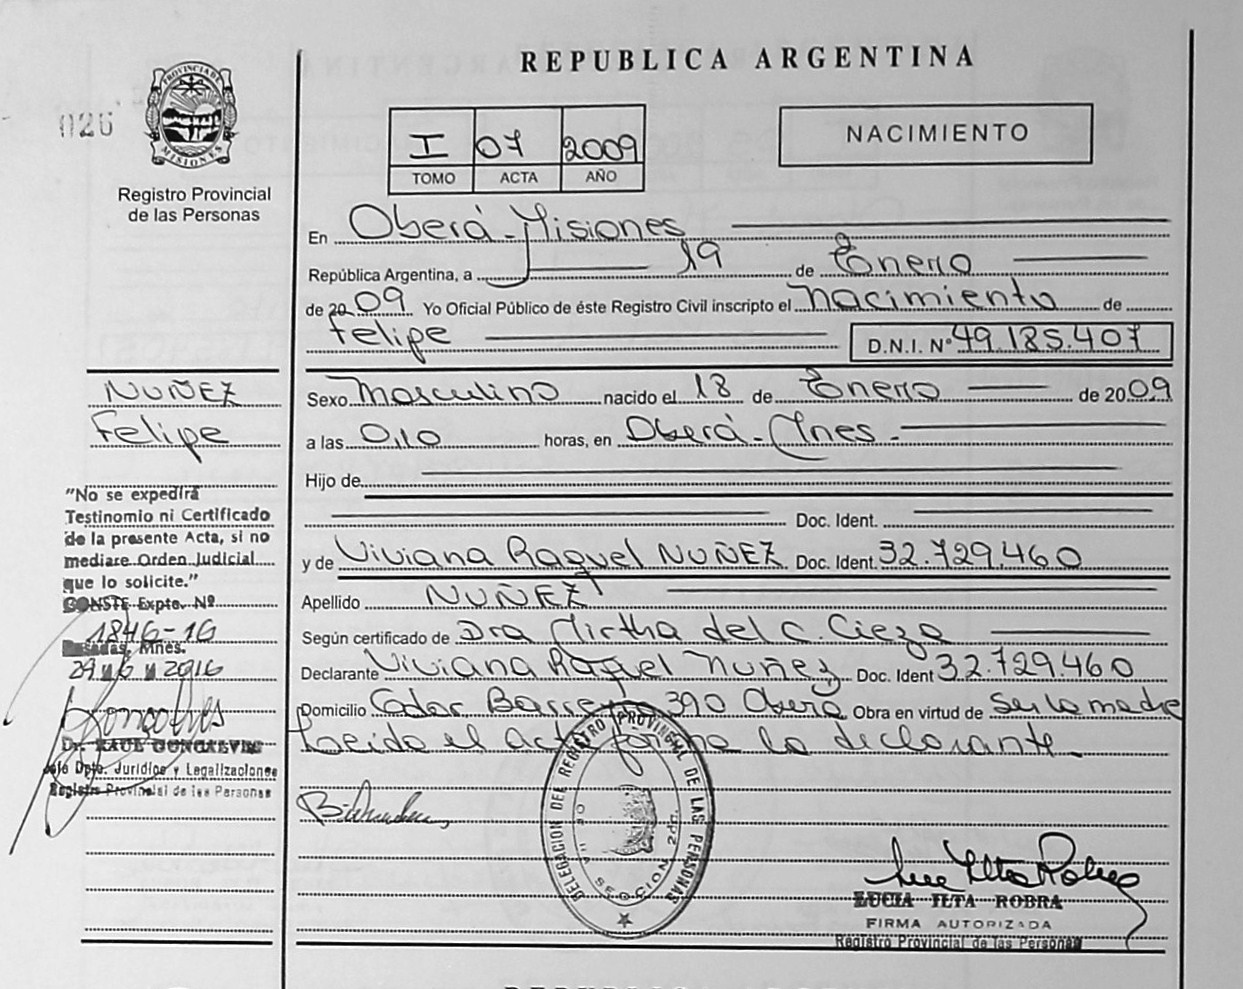 REPUBLICA ARGENTINA
026
PROVINCIA DE MISIONES
Registro Provincial
de las Personas
I 07 2009
TOMO ACTA AÑO
NACIMIENTO
En Oberá - Misiones
República Argentina, a 19 de Enero
de 2009 Yo Oficial Público de éste Registro Civil inscripto el Nacimiento de
Felipe D.N.I. N° 49.185.407
NUÑEZ
Felipe
Sexo Masculino nacido el 18 de Enero de 2009
a las 0,10 horas, en Oberá - Mnes.
Hijo de
Doc. Ident.
y de Viviana Raquel NUÑEZ Doc. Ident. 32.729.460
Apellido NUÑEZ
Según certificado de Dra Mirtha del C. Cieza
Declarante Viviana Raquel Nuñez Doc. Ident 32.729.460
Domicilio 390 Oberá Obra en virtud de Ser la madre
Leido el acta firma la declarante.
"No se expedirá
Testimonio ni Certificado
de la presente Acta, si no
mediare Orden Judicial
que lo solicite."
CONSTE Expte. Nº
1846-16
Posadas, Mnes.
29 6 2016
Gonçalves
Dr. RAUL GONCALVES
Jefe Dpto. Jurídico y Legalizaciones
Registro Provincial de las Personas
DELEGACION DEL REGISTRO PROVINCIAL DE LAS PERSONAS
SECCION 2da.
LUCIA ILTA ROBRA
FIRMA AUTORIZADA
Registro Provincial de las Personas
REPUBLICA ARGENTINA